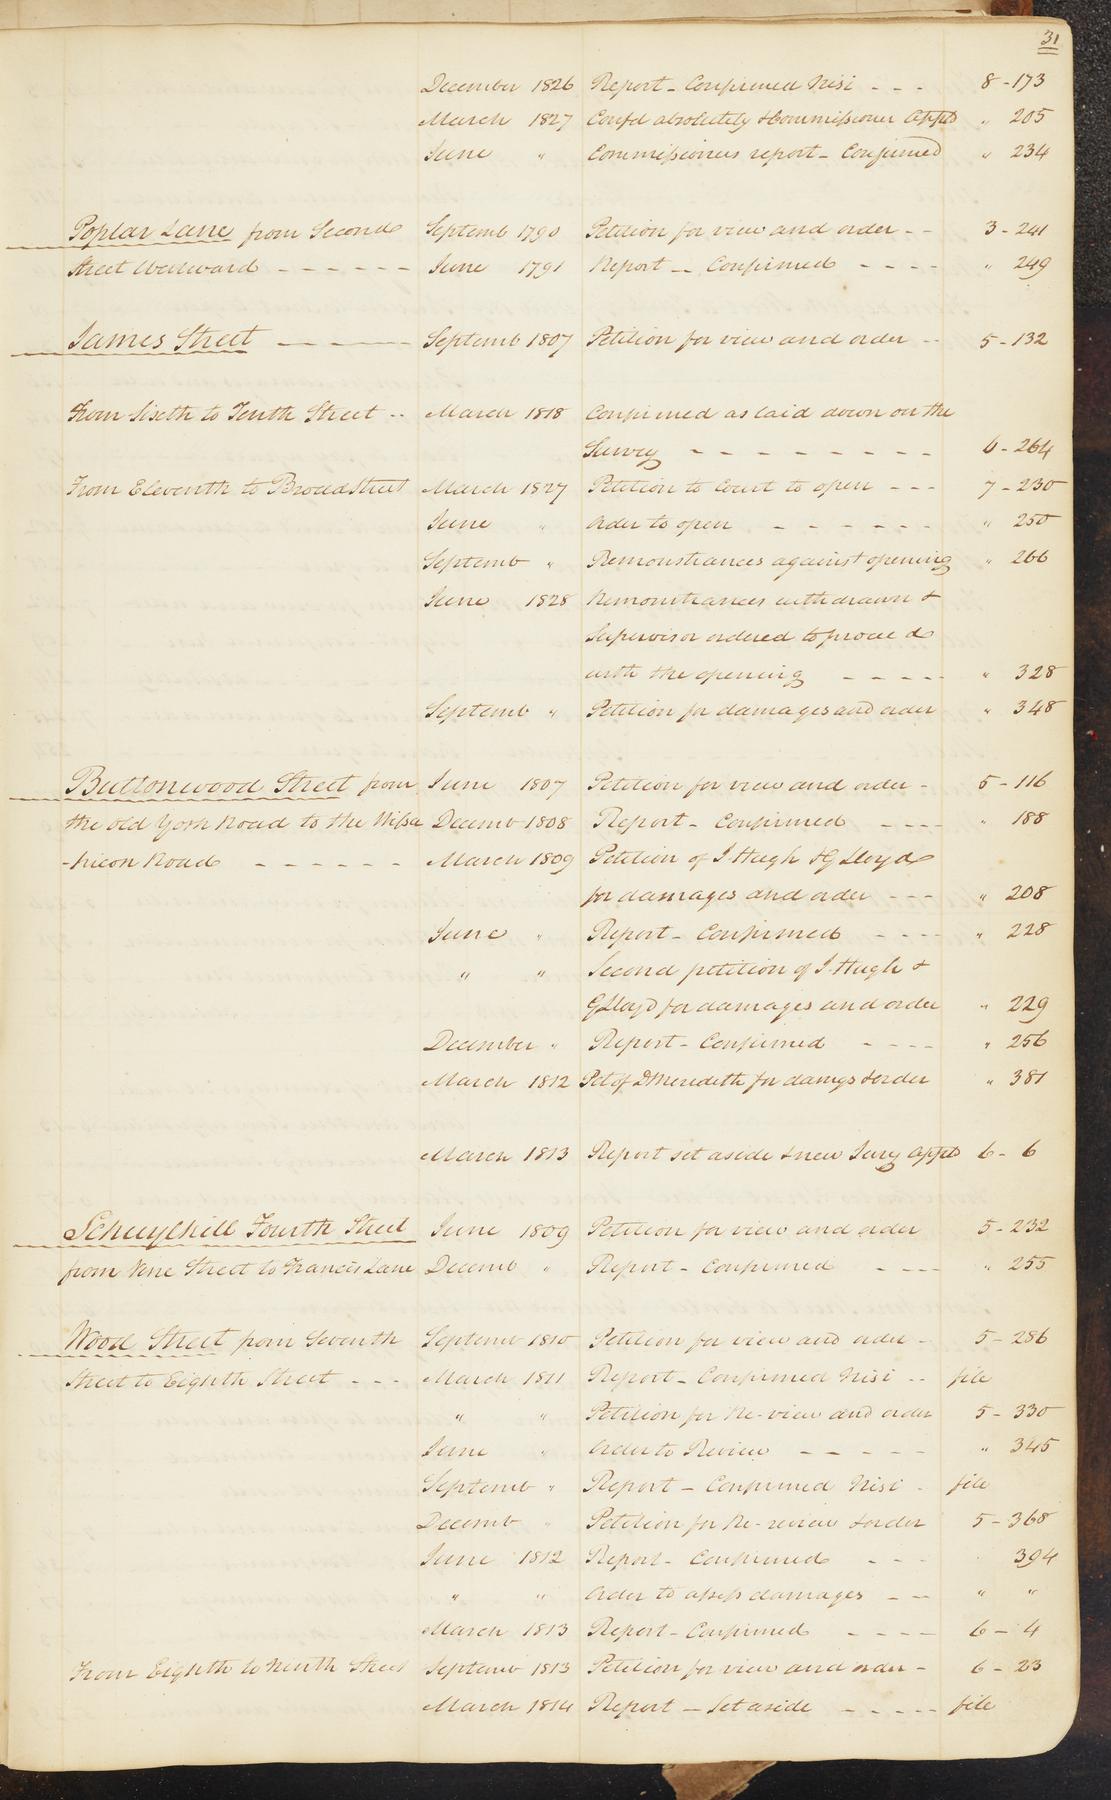 31
December 1826 Report - Confirmed Nisi - - - 8 - 173
March 1827 Confd absolutely & Commissioner Apptd " 205
June " Commissioners report - Confirmed " 234
Poplar Lane from Second Septemb 1790 Petition for view and order - - 3 - 241
Street Westward - - - - - - June 1791 Report -- Confirmed - - - - " 249
James Street - - - - - Septemb 1807 Petition for view and order -- 5 - 132
From Sixth to Tenth Street -- March 1818 Confirmed as laid down on the
Survey - - - - - - - - - 6 - 264
From Eleventh to Broad Street March 1827 Petition to Court to open - - - 7 - 230
June " Order to open - - - - - - " 250
Septemb " Remonstrances against opening " 266
June 1828 Remonstrances withdrawn &
Supervisor ordered to proceed
with the opening - - - - - " 328
Septemb " Petition for damages and order " 348
Buttonwood Street from June 1807 Petition for view and order - 5 - 116
the old York Road to the Wissa Decemb 1808 Report - Confirmed - - - - " 188
-hicon Road - - - - - - March 1809 Petition of J Hugh & G Lloyd
for damages and order - - - " 208
June " Report - Confirmed - - - - " 228
" " Second petition of J. Hugh &
G Lloyd for damages and order " 229
December " Report - Confirmed - - - - " 256
March 1812 Pet of D Meredith for damgs & order " 381
March 1813 Report set aside & new Jury Appd 6 - 6
Schuylkill Fourth Street June 1809 Petition for view and order 5 - 232
from Vine Street to Francis Lane Decemb " Report - Confirmed - - - - " 255
Wood Street from Seventh Septemb 1810 Petition for view and order - 5 - 286
Street to Eighth Street - - - March 1811 Report - Confirmed Nisi -- file
" " Petition for Re-view and order 5 - 330
June " Order to Review - - - - - " 345
Septemb " Report - Confirmed Nisi - file
Decemb " Petition for Re-review & order 5 - 368
June 1812 Report - Confirmed - - - 394
" " Order to assess damages - - " "
March 1813 Report - Confirmed - - - - 6 - 4
From Eighth to Ninth Street Septemb 1813 Petition for view and order - 6 - 23
March 1814 Report - Set aside - - - - - file